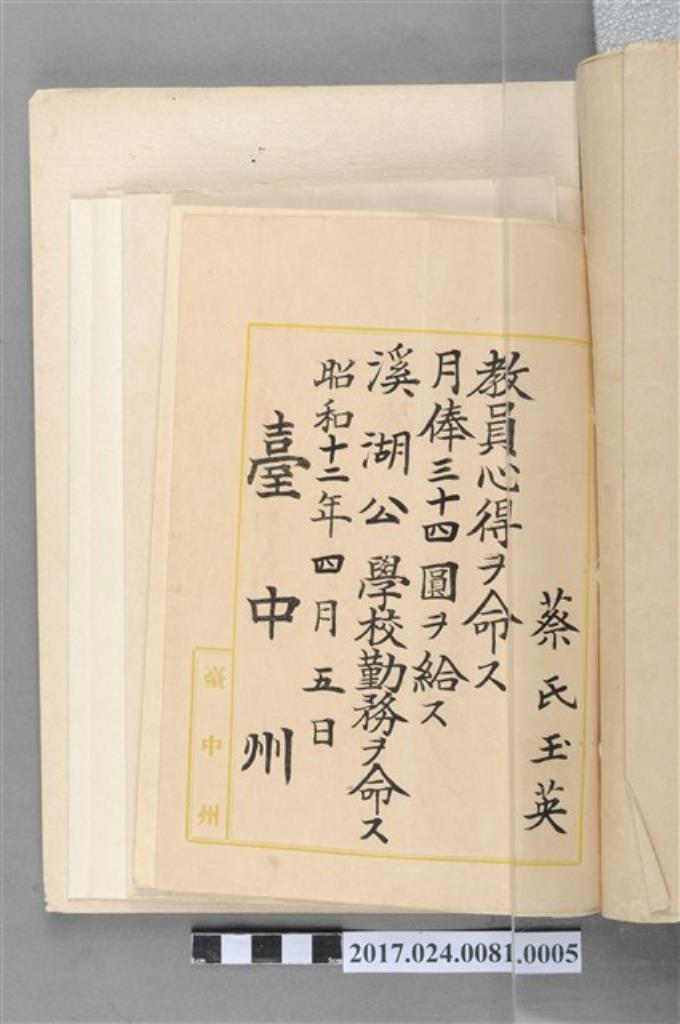 蔡氏玉英
教員心得ヲ命ス
月俸三十四圓ヲ給ス
溪湖公學校勤務ヲ命ス
昭和十二年四月五日
臺中州
臺中州
2017.024.0081.0005